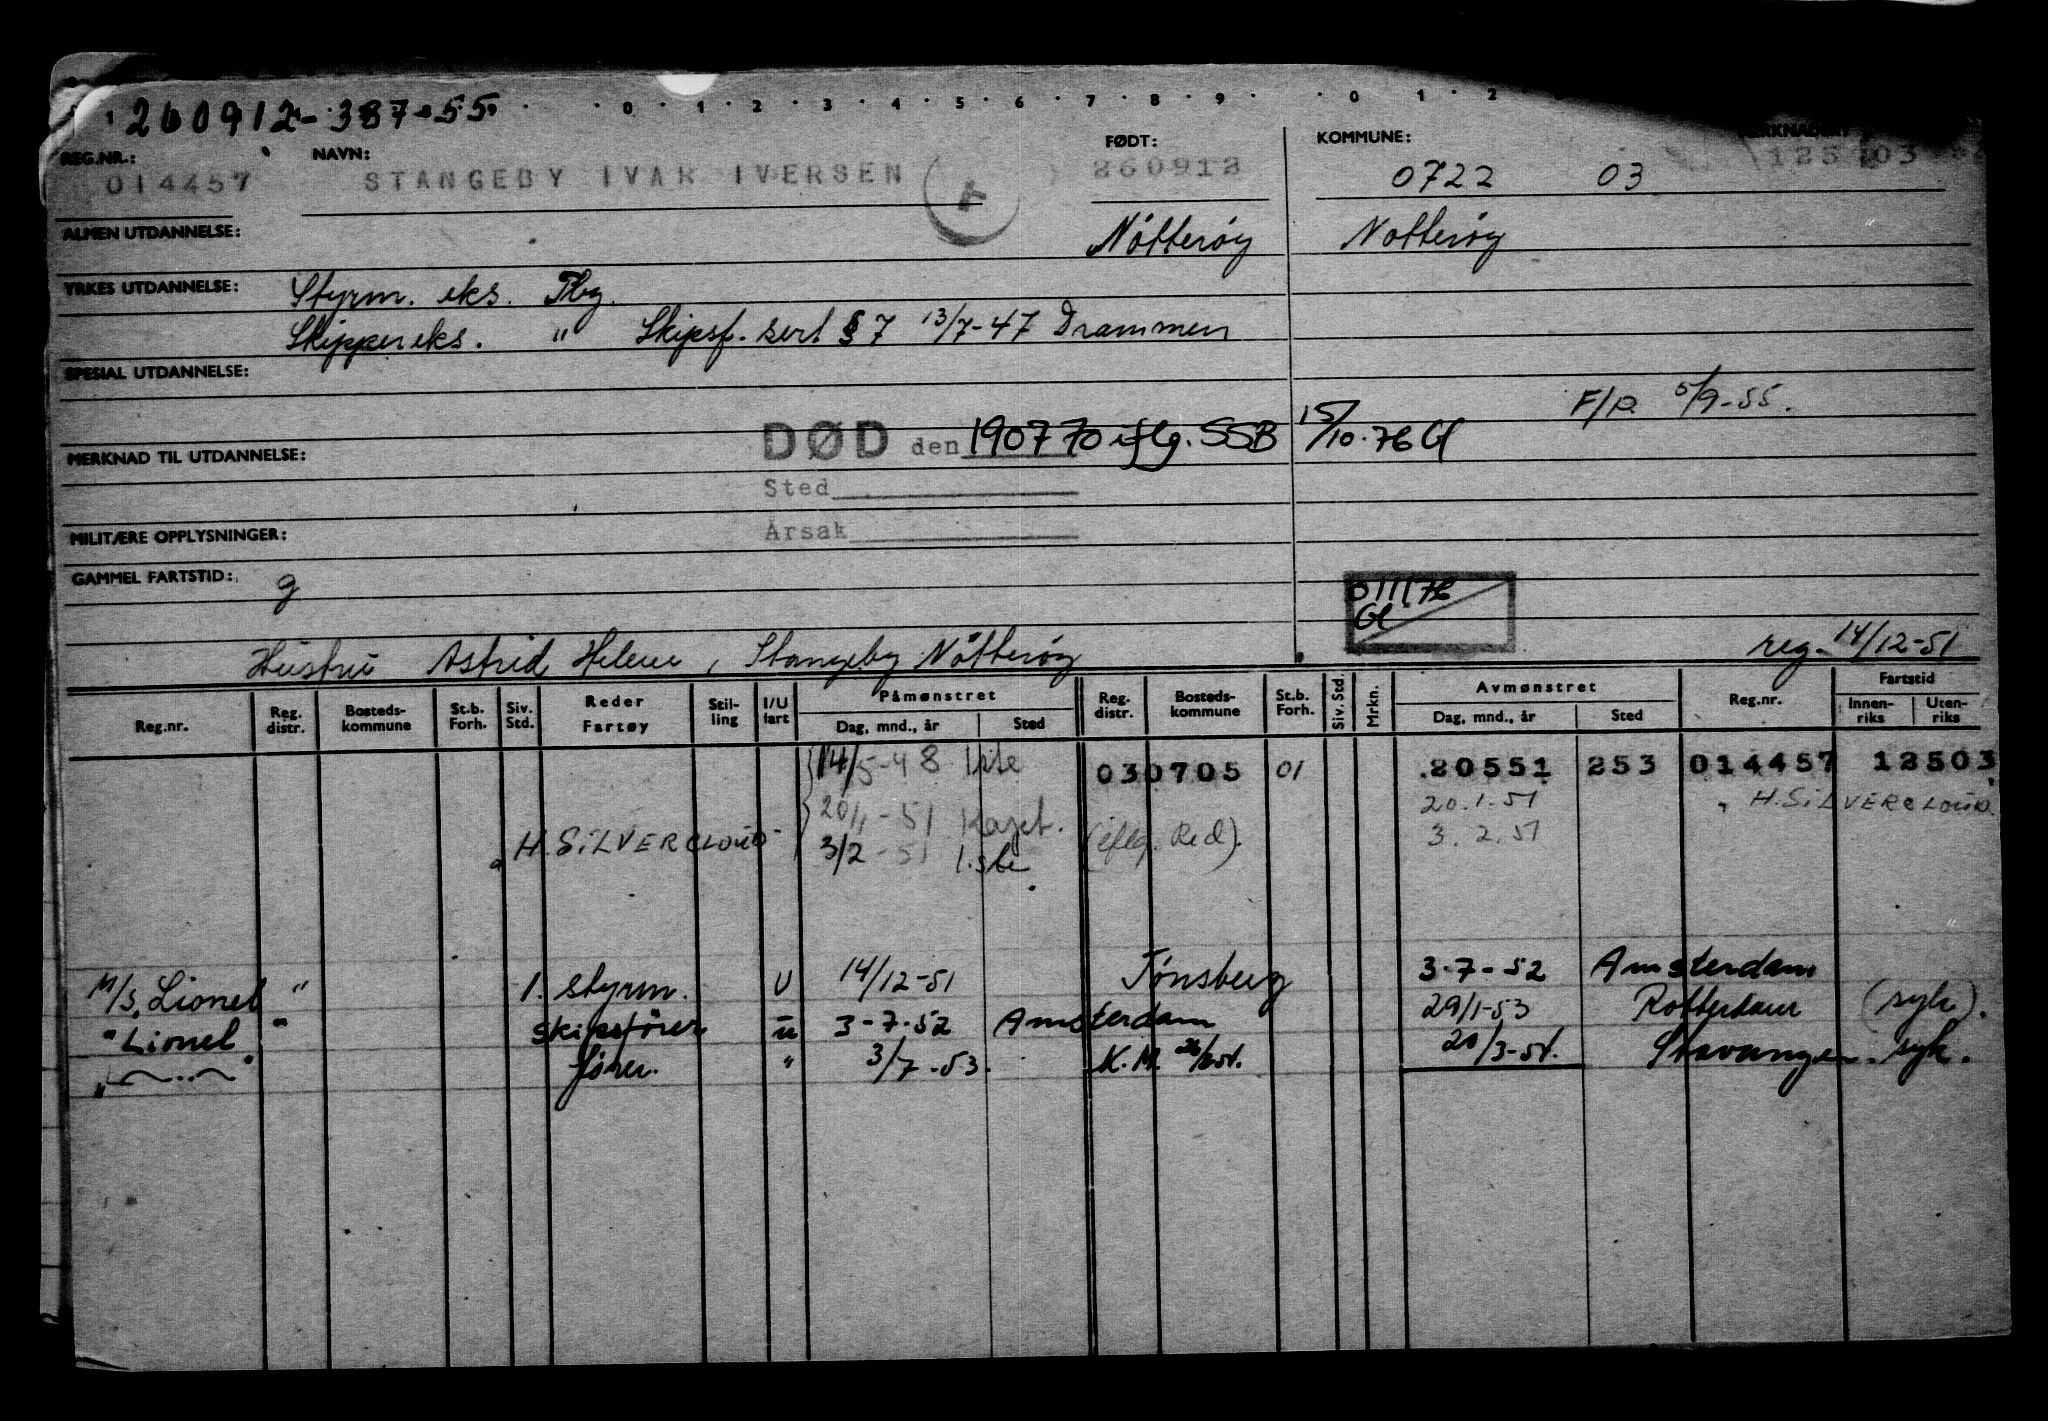 260912-387-55
0 1 2 3 4 5 6 7 8 9 0 1 2
REG.NR.: NAVN: FØDT: KOMMUNE:
014457 STANGEBY IVAR IVERSEN 260912 0722 03 125 03
ALMEN UTDANNELSE: Nötterøy Nøtterøy
YRKES UTDANNELSE: Styrm. eks. Tbg.
Skippereks. " Skipsf. sert § 7 13/7-47 Drammen
SPESIAL UTDANNELSE:
F/R 5/9-55.
MERKNAD TIL UTDANNELSE: DØD den 190770 iflg. SSB 15/10.76 Gl
Sted
MILITÆRE OPPLYSNINGER: Årsak
GAMMEL FARTSTID: g
011176
Gl
Hustru Astrid Helene, Stangeby Nötterøy reg. 14/12-51
Reg.nr. Reg. distr. Bosteds-kommune St.b. Forh. Siv. Std. Reder Fartøy Stil-ling I/U fart Påmønstret Dag, mnd., år Sted Reg. distr. Bosteds-kommune St.b. Forh. Siv. Std. Mrkn. Avmønstret Dag, mnd., år Sted Reg.nr. Fartstid Innen-riks Uten-riks
14/5-48 030705 01 20551 253 014457 12503
20/1-51 Kapt. 20.1.51 " H. SILVERCLOUD
" H. SILVERCLOUD 3/2-51 1.ste (iflg. Red). 3.2.51
M/S. Lionel " 1. styrm. U 14/12-51 Tønsberg 3-7-52 Amsterdam
" Lionel " skipsfører u 3-7-52 Amsterdam 29/1-53 Rotterdam (syk).
" " fører. " 3/7-53. K.M. 20/3-54. Stavanger. syk.